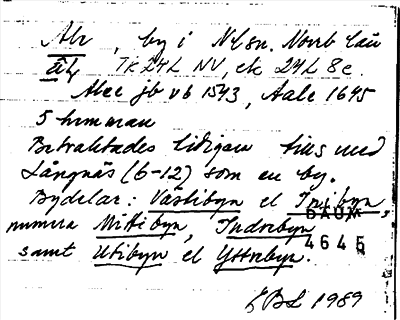 Alv, by i Nysn. Norrb län
Tk 24L NV, ek 24L 8c
Alee jb vb 1543, Aale 1645
5 hemman
Betraktades tidigare tills med
Långnäs (6-12) som en by.
Bydelar: Västibyn el Inibyn,
numera Mittibyn, Indribyn
DAUM
4645
samt Utibyn el Ytterbyn.
EBL 1989